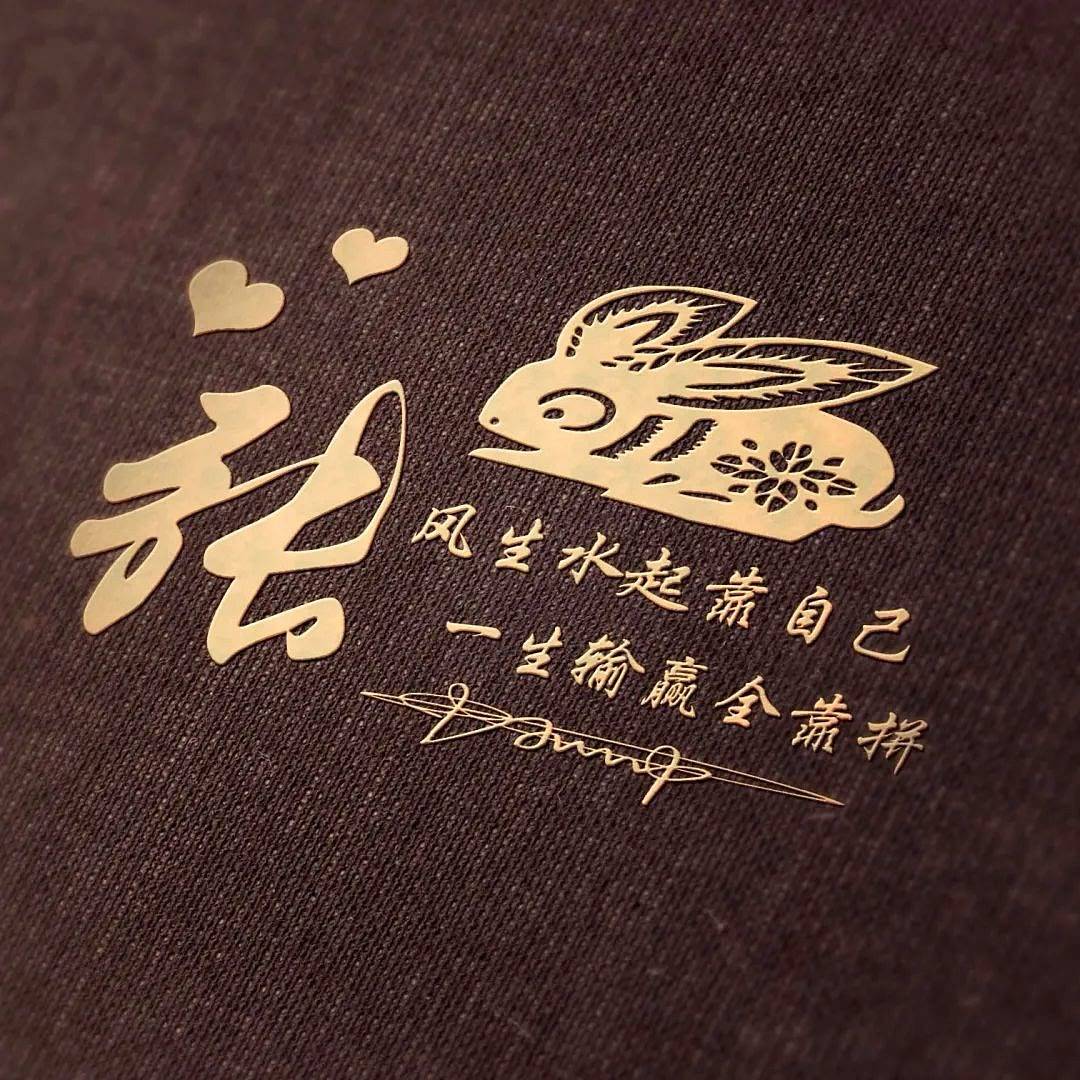 张
风生水起靠自己
一生输赢全靠拼